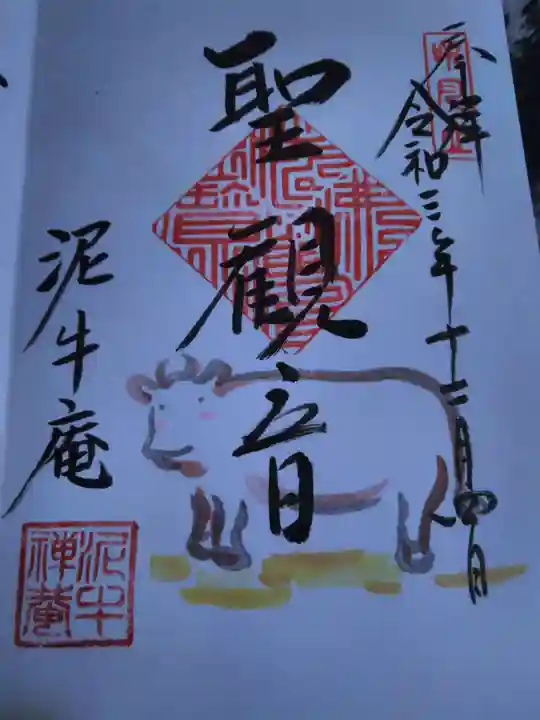 奉拝
令和三年十二月四日
聖観音
泥牛庵
泥牛禅菴